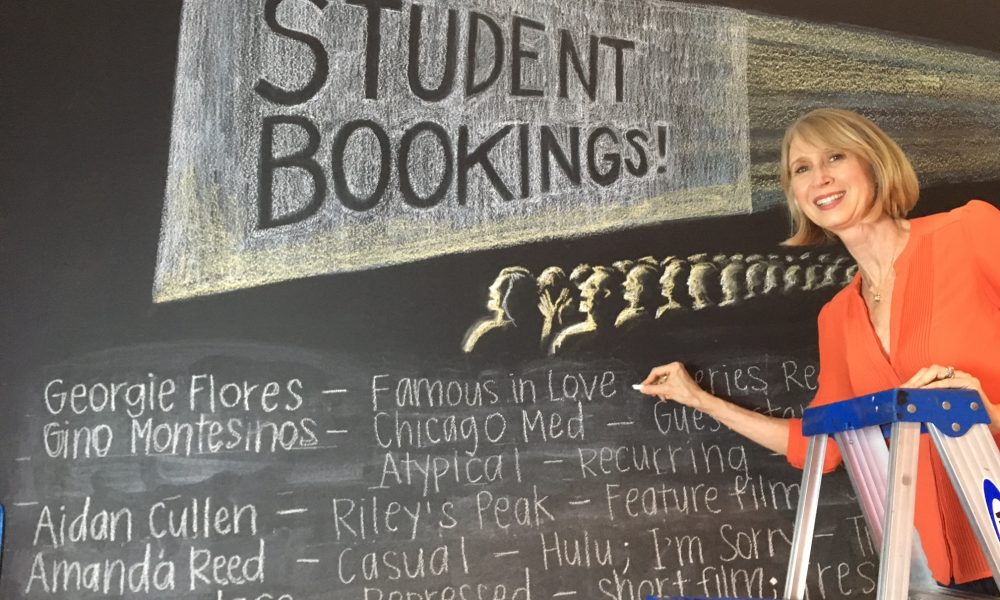 STUDENT
BOOKINGS!
Georgie Flores – Famous in Love – Series Re
Gino Montesinos – Chicago Med – Guest
Atypical – Recurring
Aidan Cullen – Riley's Peak – Feature film
Amanda Reed – Casual – Hulu; I'm Sorry –
Repressed – short film;